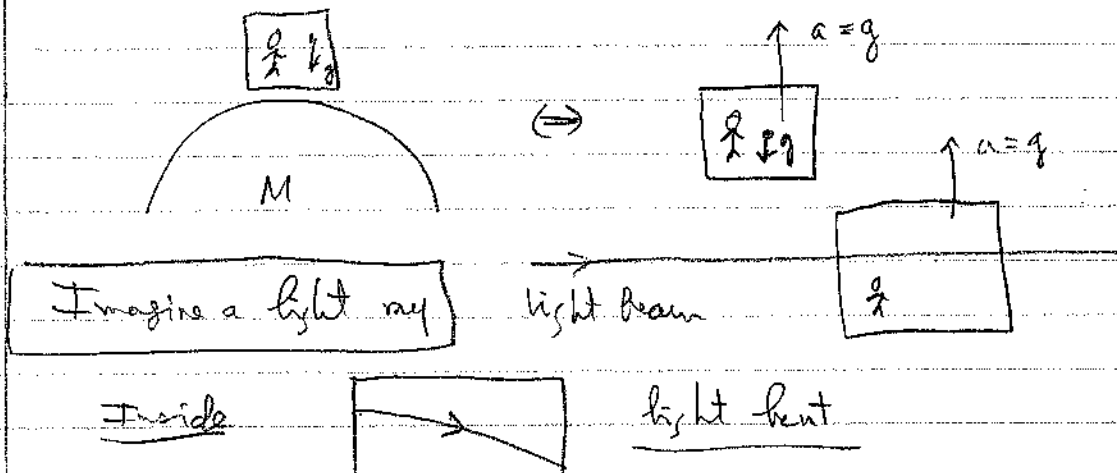 g
a = g
⇔
g
M
a = g
Imagine a light ray
light beam
Inside
light bent